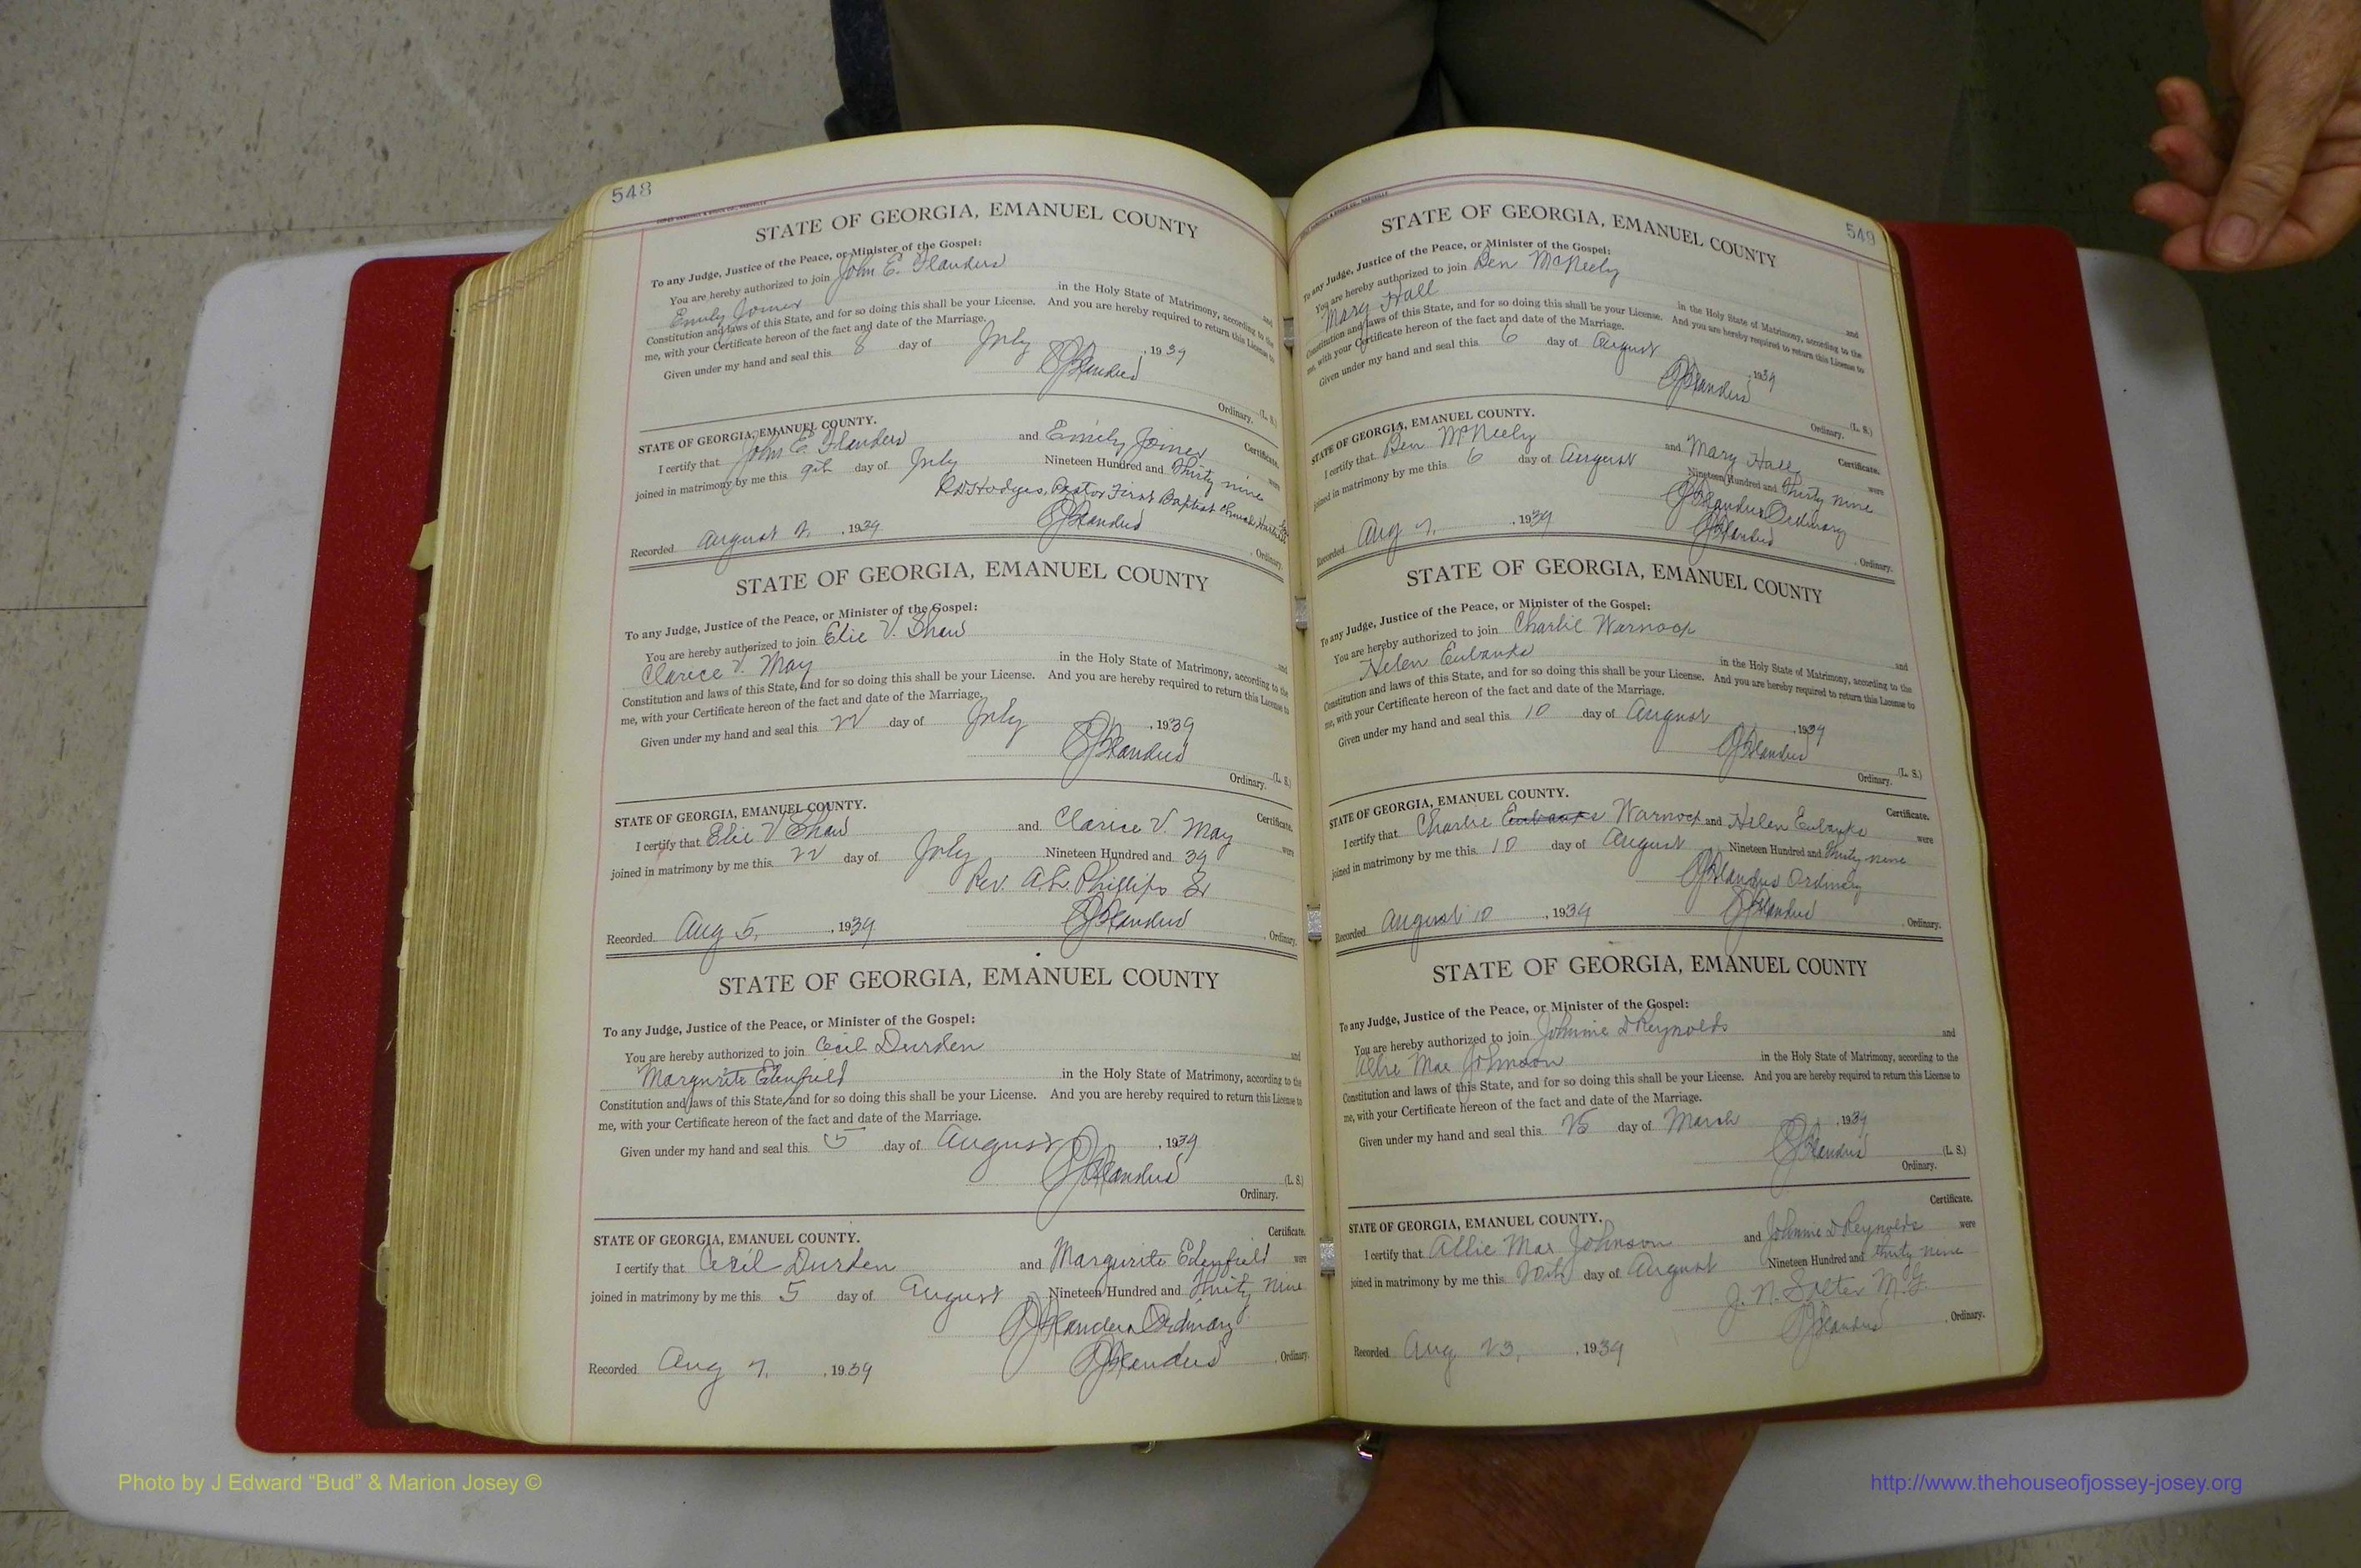 548
STATE OF GEORGIA, EMANUEL COUNTY
To any Judge, Justice of the Peace, or Minister of the Gospel:
You are hereby authorized to join John E. Flanders and
Emily Joiner in the Holy State of Matrimony, according to the
Constitution and laws of this State, and for so doing this shall be your License. And you are hereby required to return this License to
me, with your Certificate hereon of the fact and date of the Marriage.
Given under my hand and seal this 8 day of July, 1939
Flanders (L. S.)
Ordinary.
STATE OF GEORGIA, EMANUEL COUNTY. Certificate.
I certify that John E. Flanders and Emily Joiner were
joined in matrimony by me this 9th day of July Nineteen Hundred and Thirty nine
R. D. Hodges, Pastor First Baptist Church
Flanders
Recorded August 2, 1939, Ordinary.
STATE OF GEORGIA, EMANUEL COUNTY
To any Judge, Justice of the Peace, or Minister of the Gospel:
You are hereby authorized to join Elie V. Shaw and
Clarice V. May in the Holy State of Matrimony, according to the
Constitution and laws of this State, and for so doing this shall be your License. And you are hereby required to return this License to
me, with your Certificate hereon of the fact and date of the Marriage.
Given under my hand and seal this 22 day of July, 1939
Flanders (L. S.)
Ordinary.
STATE OF GEORGIA, EMANUEL COUNTY. Certificate.
I certify that Elie V Shaw and Clarice V. May were
joined in matrimony by me this 22 day of July Nineteen Hundred and 39
Rev. A. L. Phillips Sr
Flanders
Recorded Aug 5, 1939, Ordinary.
STATE OF GEORGIA, EMANUEL COUNTY
To any Judge, Justice of the Peace, or Minister of the Gospel:
You are hereby authorized to join Cecil Durden and
Margurite Edenfield in the Holy State of Matrimony, according to the
Constitution and laws of this State, and for so doing this shall be your License. And you are hereby required to return this License to
me, with your Certificate hereon of the fact and date of the Marriage.
Given under my hand and seal this 5 day of August, 1939
Flanders (L. S.)
Ordinary.
STATE OF GEORGIA, EMANUEL COUNTY. Certificate.
I certify that Cecil Durden and Margurite Edenfield were
joined in matrimony by me this 5 day of August Nineteen Hundred and thirty nine
Flanders Ordinary
Flanders
Recorded Aug 7, 1939, Ordinary.
549
STATE OF GEORGIA, EMANUEL COUNTY
To any Judge, Justice of the Peace, or Minister of the Gospel:
You are hereby authorized to join Ben McNeely and
Mary Hall in the Holy State of Matrimony, according to the
Constitution and laws of this State, and for so doing this shall be your License. And you are hereby required to return this License to
me, with your Certificate hereon of the fact and date of the Marriage.
Given under my hand and seal this 6 day of August, 1939
Flanders (L. S.)
Ordinary.
STATE OF GEORGIA, EMANUEL COUNTY. Certificate.
I certify that Ben McNeely and Mary Hall were
joined in matrimony by me this 6 day of August Nineteen Hundred and Thirty nine
Flanders Ordinary
Flanders
Recorded Aug 7, 1939, Ordinary.
STATE OF GEORGIA, EMANUEL COUNTY
To any Judge, Justice of the Peace, or Minister of the Gospel:
You are hereby authorized to join Charlie Warnock and
Helen Eubanks in the Holy State of Matrimony, according to the
Constitution and laws of this State, and for so doing this shall be your License. And you are hereby required to return this License to
me, with your Certificate hereon of the fact and date of the Marriage.
Given under my hand and seal this 10 day of August, 1939
Flanders (L. S.)
Ordinary.
STATE OF GEORGIA, EMANUEL COUNTY. Certificate.
I certify that Charlie Eubanks Warnock and Helen Eubanks were
joined in matrimony by me this 10 day of August Nineteen Hundred and Thirty nine
Flanders Ordinary
Flanders
Recorded August 10, 1939, Ordinary.
STATE OF GEORGIA, EMANUEL COUNTY
To any Judge, Justice of the Peace, or Minister of the Gospel:
You are hereby authorized to join Johnnie D Reynolds and
Allie Mae Johnson in the Holy State of Matrimony, according to the
Constitution and laws of this State, and for so doing this shall be your License. And you are hereby required to return this License to
me, with your Certificate hereon of the fact and date of the Marriage.
Given under my hand and seal this 25 day of March, 1939
Flanders (L. S.)
Ordinary.
STATE OF GEORGIA, EMANUEL COUNTY. Certificate.
I certify that Allie Mae Johnson and Johnnie D Reynolds were
joined in matrimony by me this 20th day of August Nineteen Hundred and thirty nine
J. N. Salter M.G.
Flanders, Ordinary.
Recorded Aug 23, 1939
Photo by J Edward “Bud” & Marion Josey ©
http://www.thehouseofjossey-josey.org